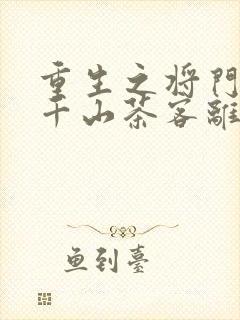 重生之将门
千山茶客离
鱼到臺